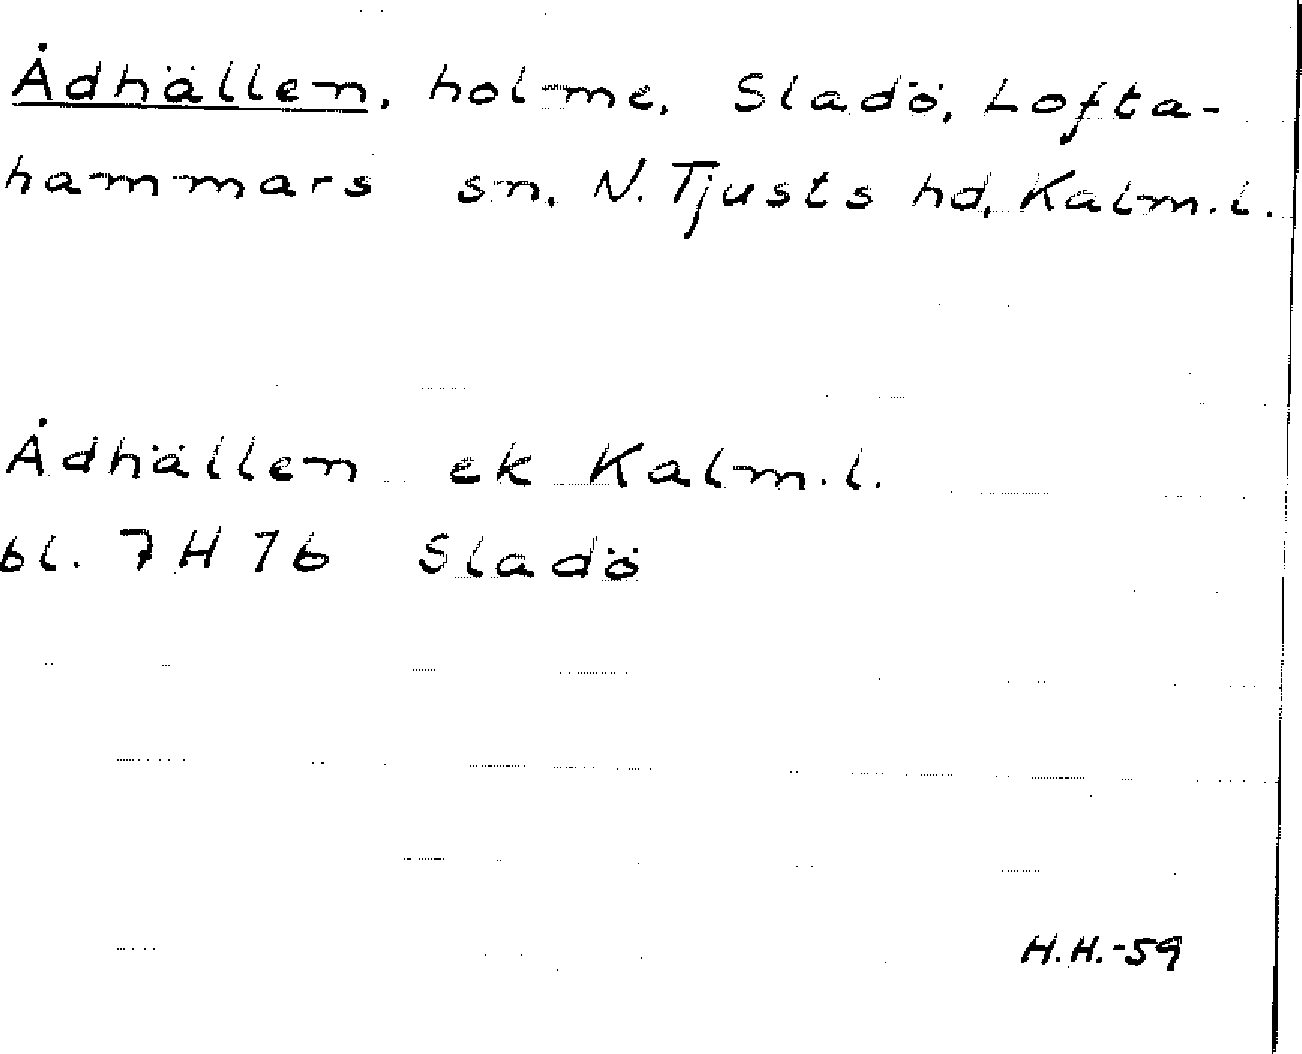 Ådhällen, holme, Sladö, Lofta-
hammars sn, N. Tjusts hd, Kalm. l.
Ådhällen ek Kalm. l.
bl. 7 H 7b Sladö
H.H.-59